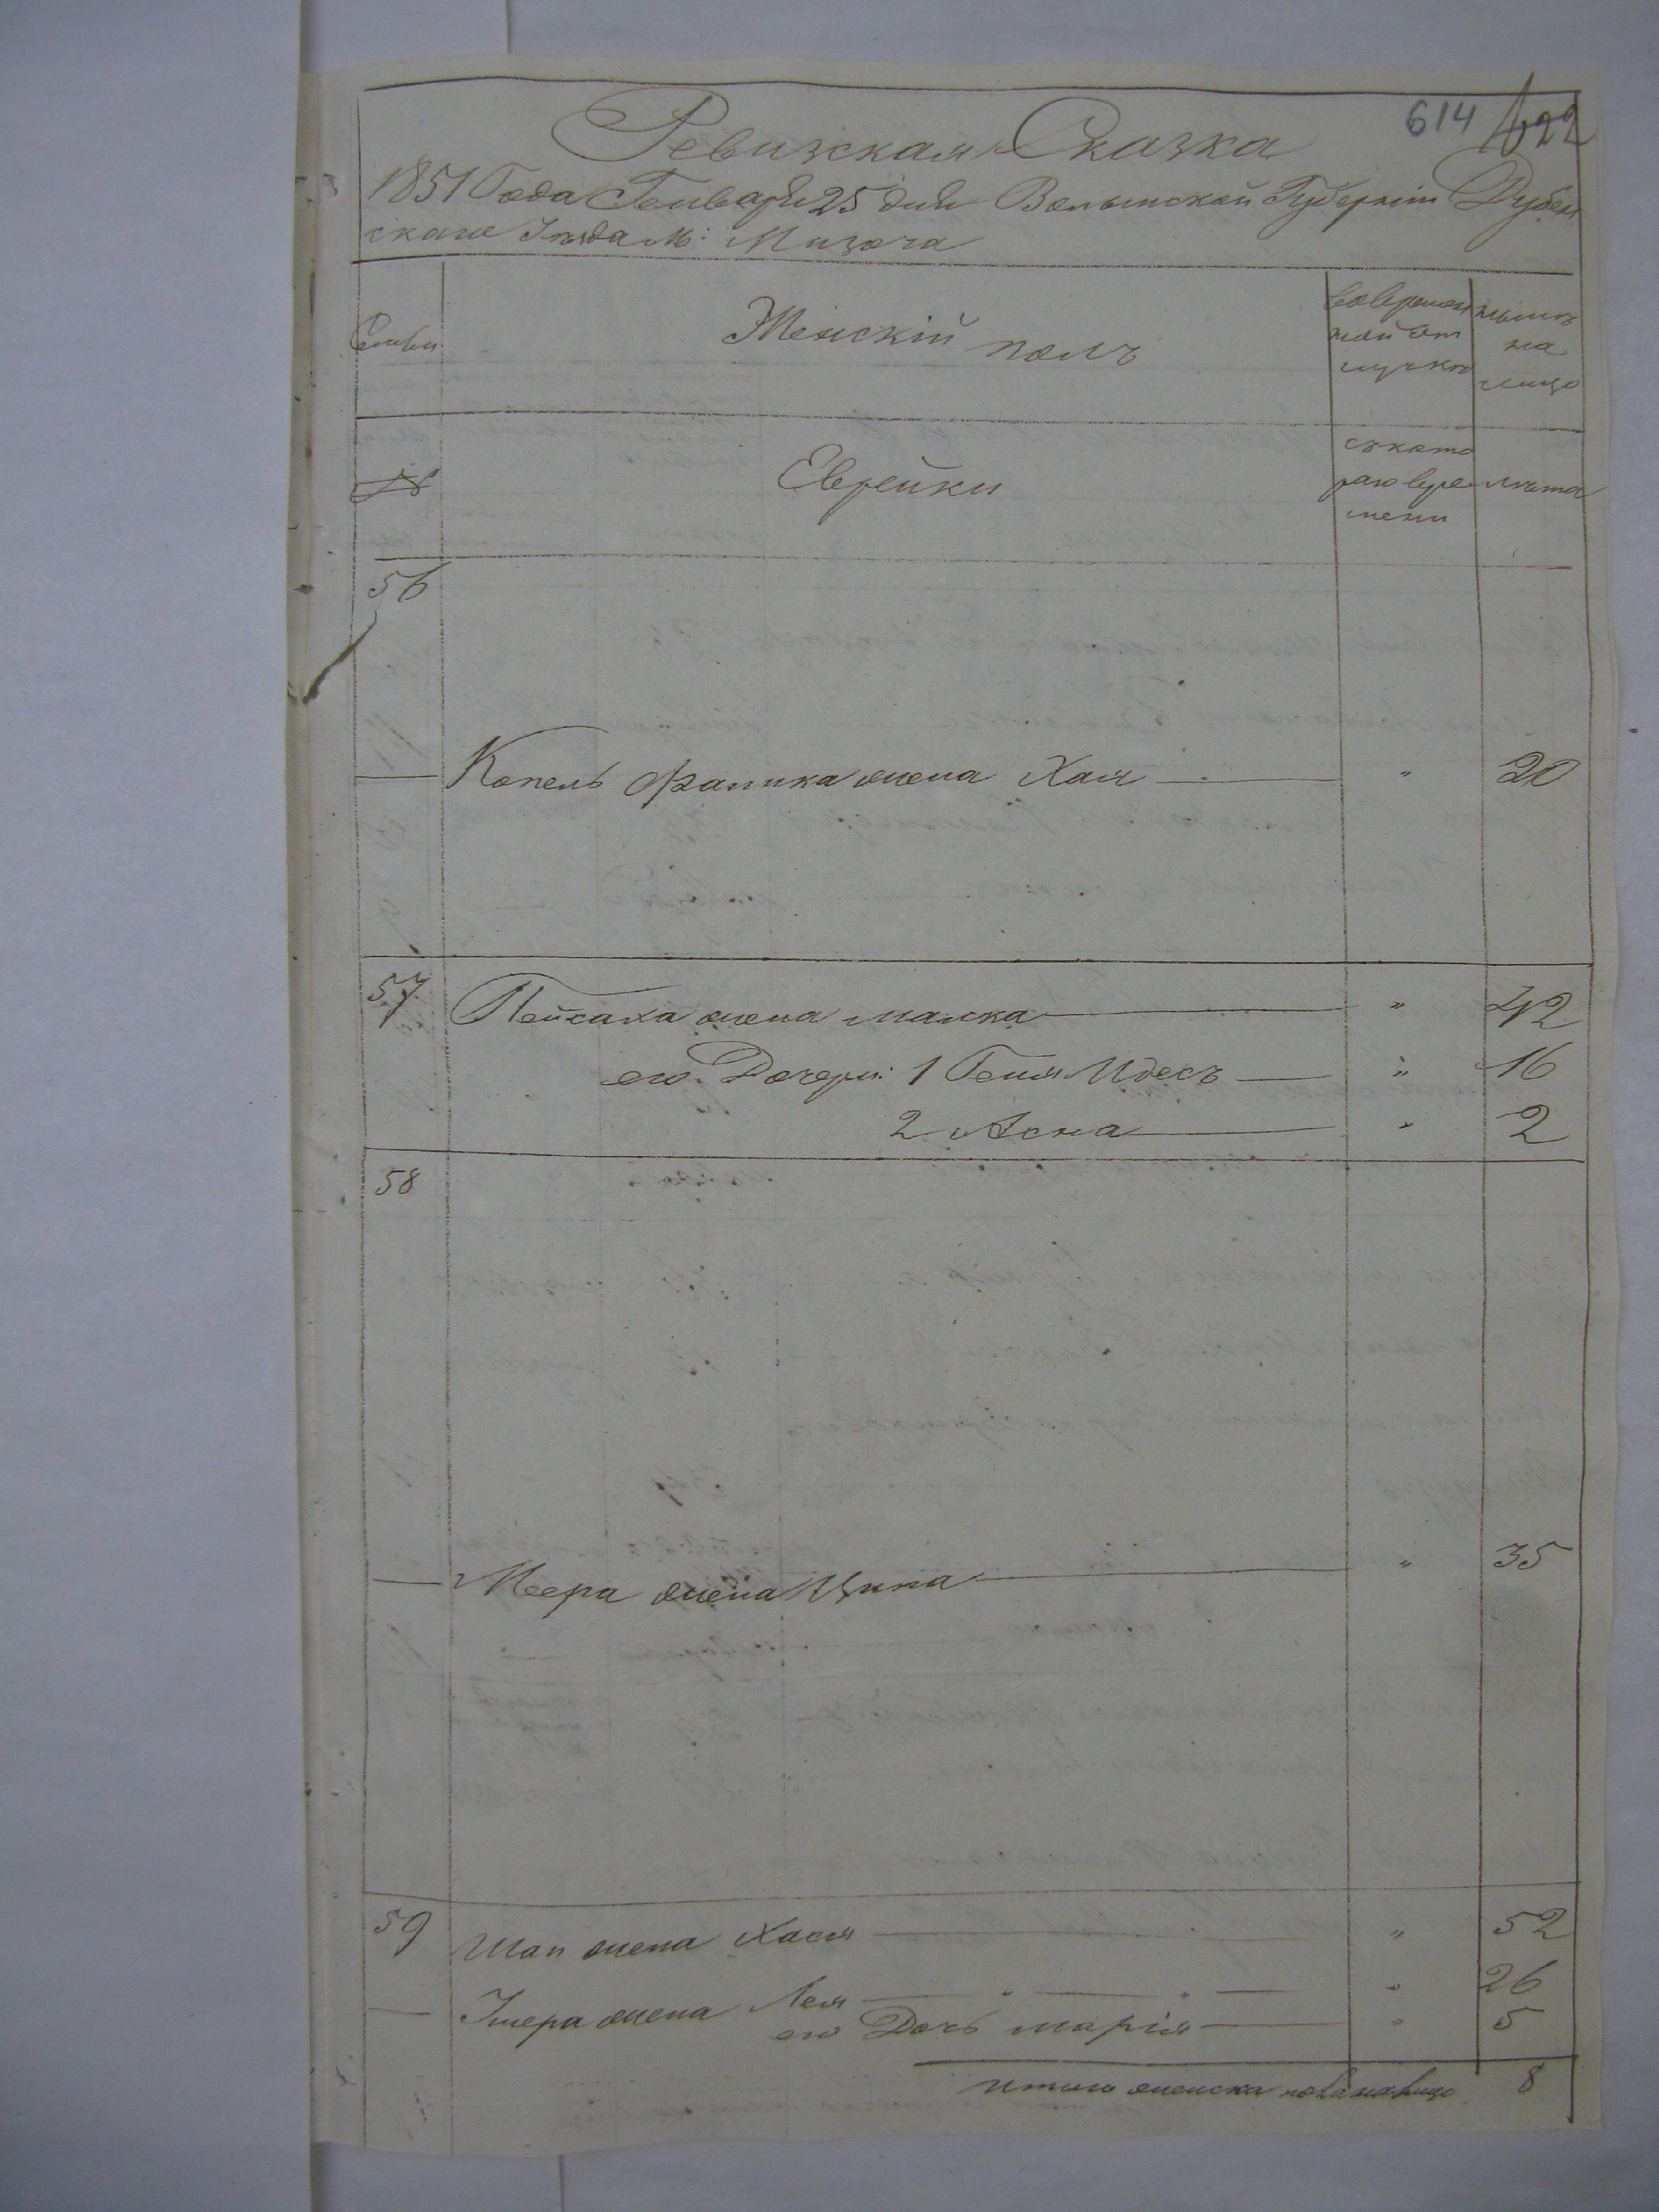 614 622
Ревизская Сказка
1851 Года Генваря 25 дня Волынской Губерніи Дубен
скаго Уѣзда М: Мизоча
Семьи
Женскій полъ
во времен
ной от
лучкѣ
нынѣ
на
лицо
№
Еврейки
съ кото
раго вре
мени
лѣта
56
Копель жена Хая — " 20
57 Пейсаха жена Малка — " 42
его Дочери: 1 Геня Идесъ — " 16
2 Асна — " 2
58
— Меера жена Ципа — " 35
59 жена Хася — " 52
— жена Лея — " — " — " 26
его Дочь Марія — " 5
Итого женска пола на лицо 8